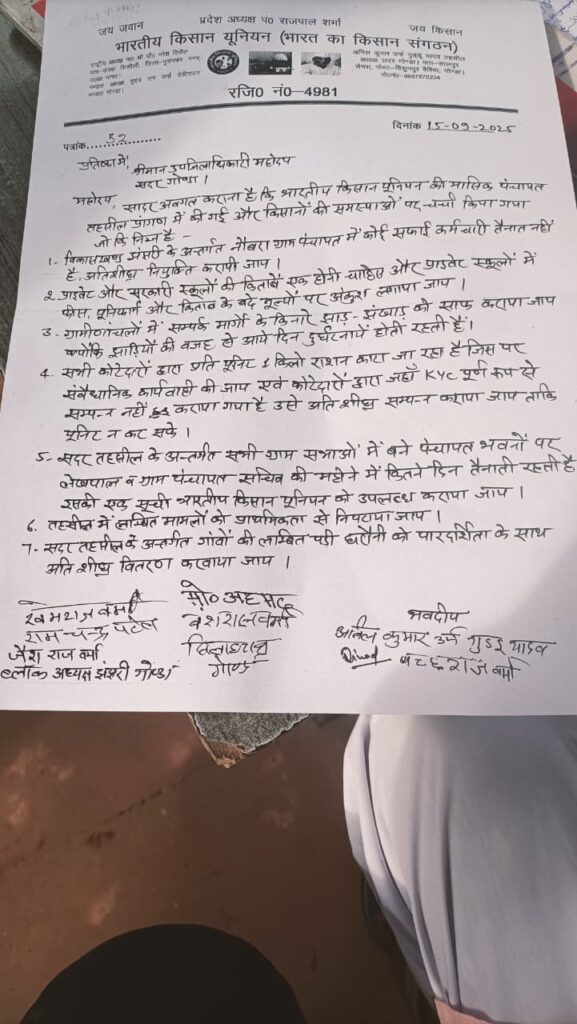 जय जवान
प्रदेश अध्यक्ष पं0 राजपाल शर्मा
जय किसान
भारतीय किसान यूनियन (भारत का किसान संगठन)
रजि0 नं0-4981
पत्रांक 52
दिनांक 15-09-2025
प्रतिष्ठा में,
श्रीमान उपजिलाधिकारी महोदय
सदर गोण्डा।
महोदय
सादर अवगत कराना है कि भारतीय किसान यूनियन की मासिक पंचायत
तहसील प्रांगण में की गई और किसानों की समस्याओं पर चर्चा किया गया
जो कि निम्न है -
1- विकासखण्ड झंझरी के अन्तर्गत नौबरा ग्राम पंचायत में कोई सफाई कर्मचारी तैनात नहीं
है, अतिशीघ्र नियुक्ति करायी जाय।
2. प्राइवेट और सरकारी स्कूलों की किताबें एक होनी चाहिए और प्राइवेट स्कूलों में
फीस, यूनिफार्म और किताब के बढ़े मूल्यों पर अंकुश लगाया जाय।
3. ग्रामीणांचलों में सम्पर्क मार्गों के किनारे झाड़-झंखाड़ को साफ कराया जाय
क्योंकि झाड़ियों की वजह से आये दिन दुर्घटनायें होती रहती हैं।
4. सभी कोटेदारों द्वारा प्रति यूनिट 1 किलो राशन काटा जा रहा है जिस पर
संवैधानिक कार्यवाही की जाय एवं कोटेदारों द्वारा जहाँ KYC पूर्ण रूप से
सम्पन्न नहीं कराया गया है उसे अति शीघ्र सम्पन्न कराया जाय ताकि
यूनिट न कट सके।
5- सदर तहसील के अन्तर्गत सभी ग्राम सभाओं में बने पंचायत भवनों पर
लेखपाल व ग्राम पंचायत सचिव की महीने में कितने दिन तैनाती रहती है
उसकी एक सूची भारतीय किसान यूनियन को उपलब्ध कराया जाय।
6. तहसील में लम्बित मामलों को प्राथमिकता से निपटाया जाय।
7- सदर तहसील के अन्तर्गत गांवों की लम्बित पड़ी घरौनी को पारदर्शिता के साथ
अति शीघ्र वितरण करवाया जाय।
खेमराज वर्मा
राम चन्द्र पटेल
जैश राज वर्मा
ब्लाक अध्यक्ष झंझरी गोण्डा
मो० अहमद
गोण्डा
भवदीय
अनिल कुमार उर्फ गुड्डू यादव
वर्मा